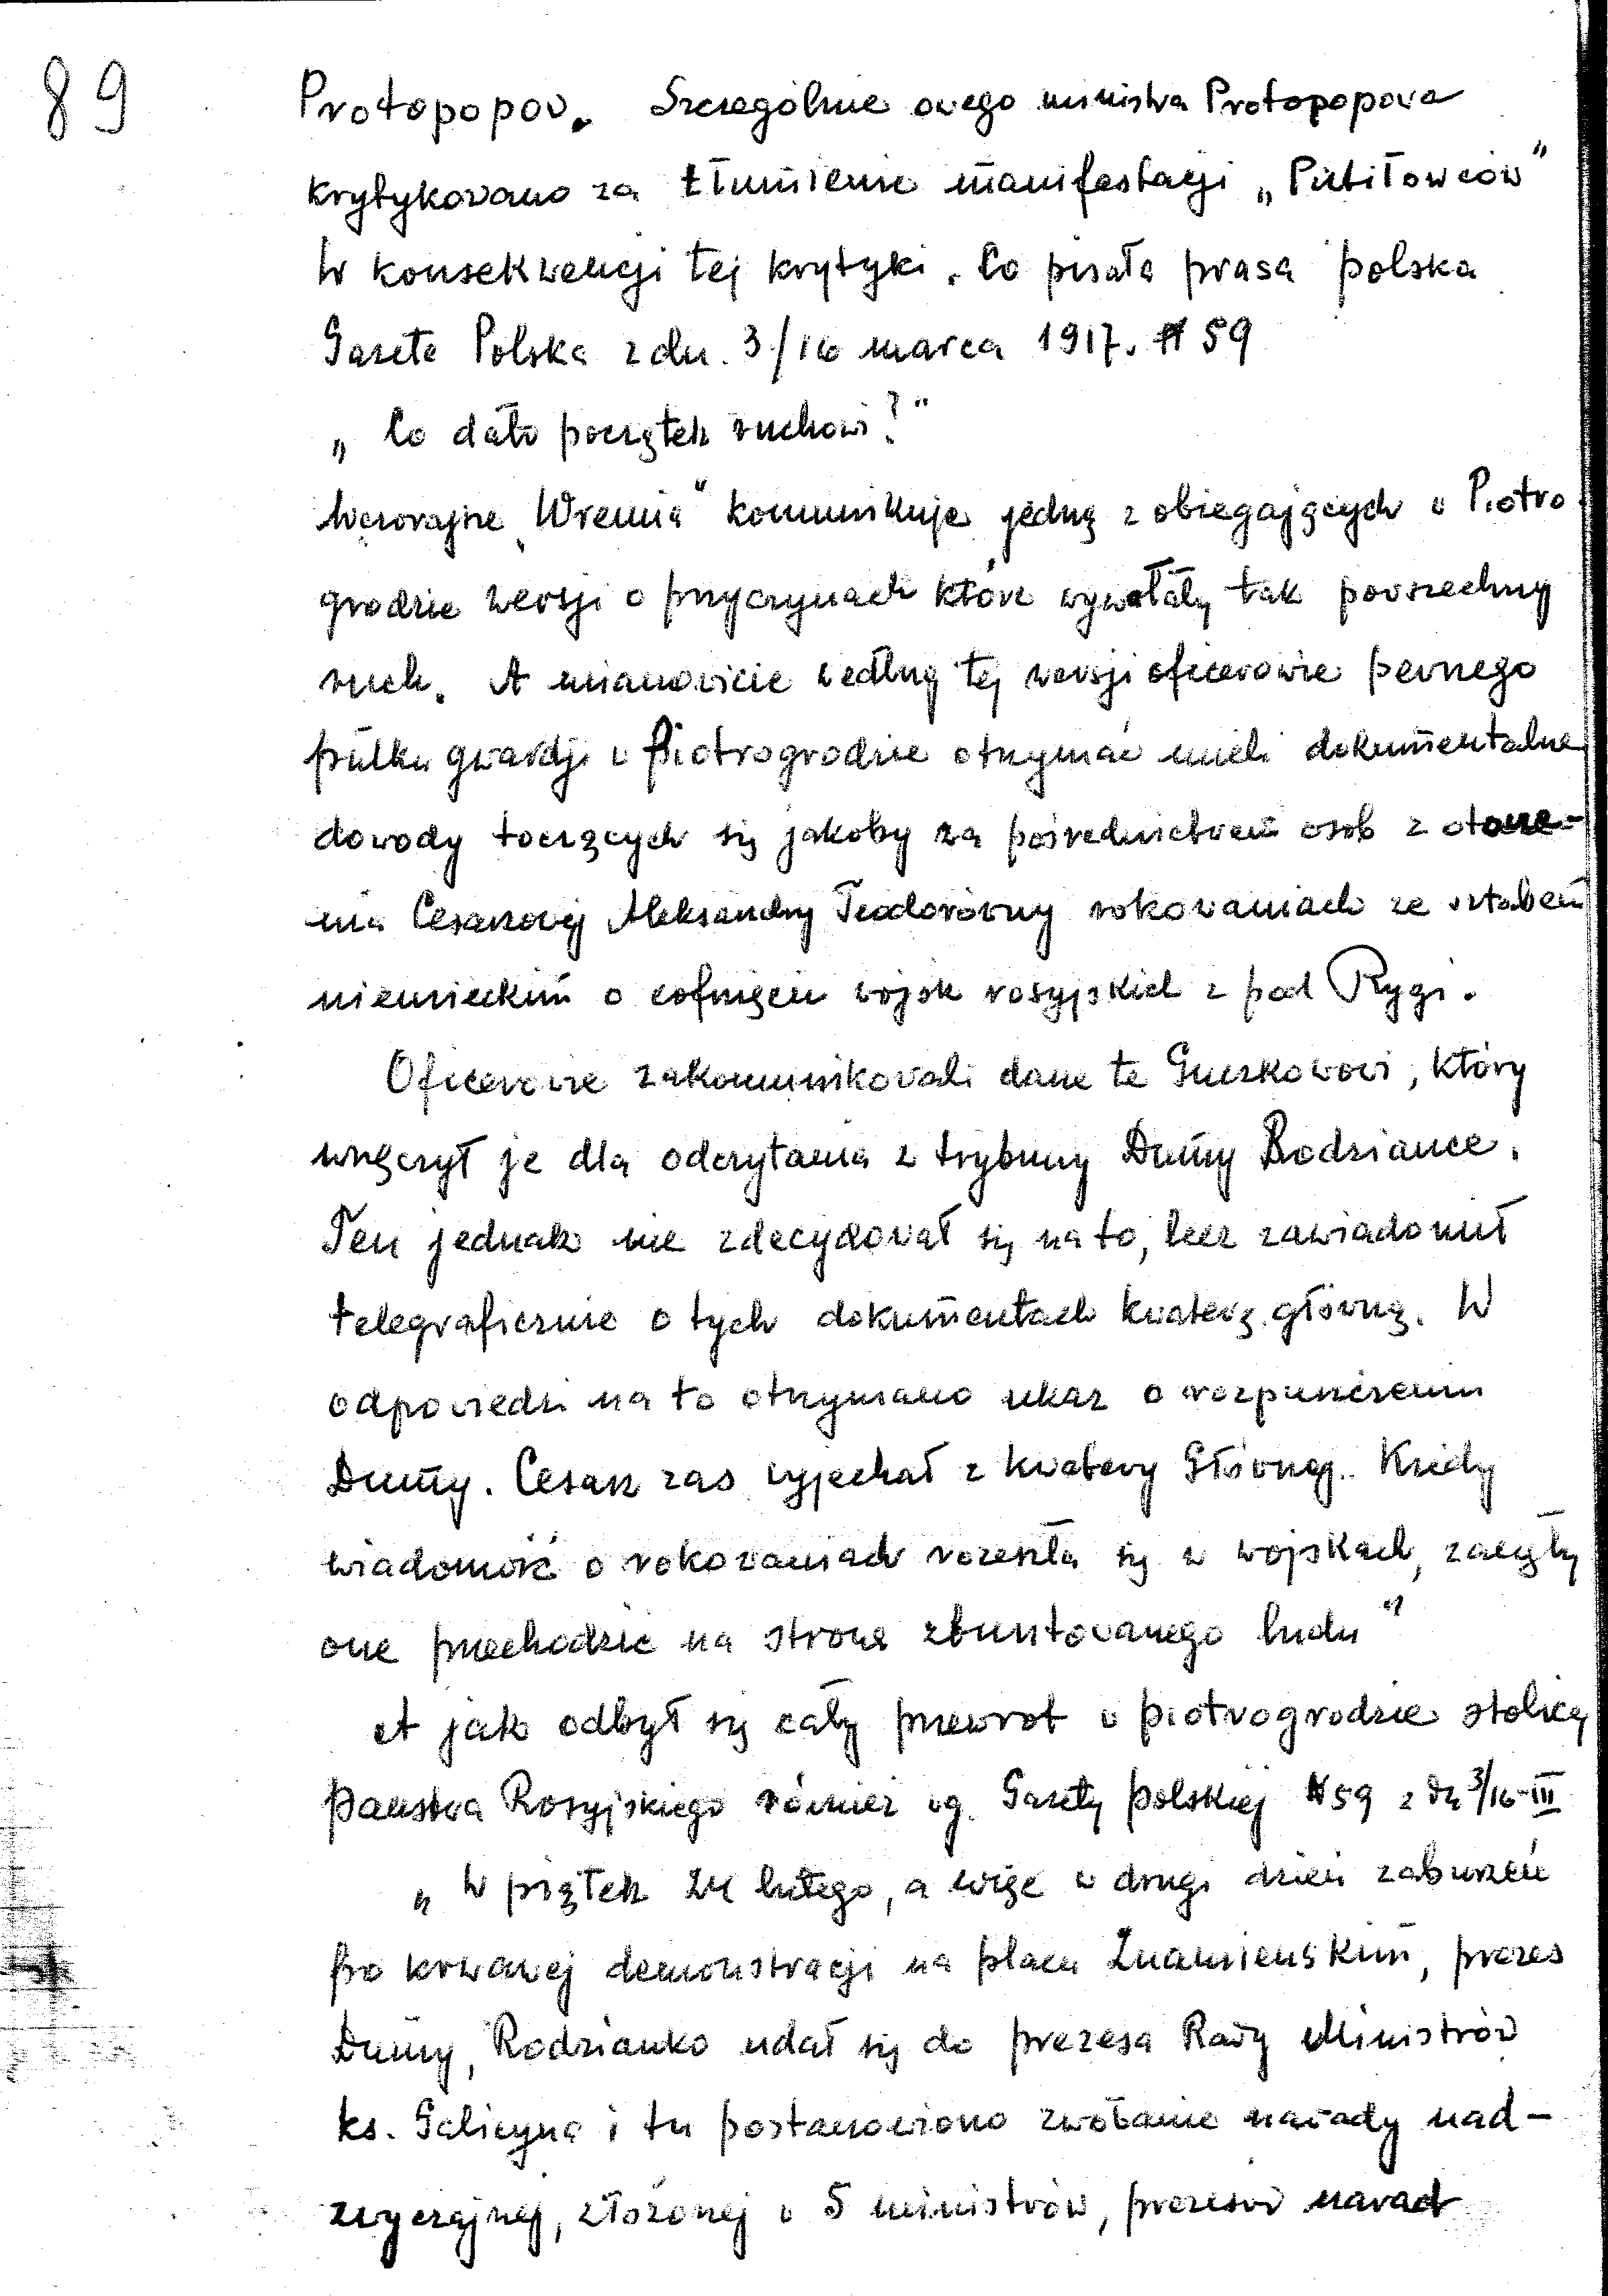 89
Protopopov. Szczególnie owego ministra Protopopova
krytykowano za tłumienie manifestacji „Putiłowców"
W konsekwencji tej krytyki. Co pisała prasa polska
Gazeta Polska z dn. 3/16 marca 1917. N 59
„Co dało początek ruchowi?"
Wczorajsze „Wremia" komunikuje jedną z obiegających w Piotro
grodzie wersji o przyczynach które wywołały tak powszechny
ruch. A mianowicie według tej wersji oficerowie pewnego
pułku gwardji w Piotrogrodzie otrzymać mieli dokumentalne
dowody toczących się jakoby za pośrednictwem osob z otocze-
nia Cesarzowej Aleksandry Teodorówny rokowaniach ze sztabem
niemieckim o cofnięciu wojsk rosyjskich z pod Rygi.
Oficerowie zakomunikowali dane te Guczkowowi, który
wręczył je dla odczytania z trybuny Dumy Rodziance.
Ten jednak nie zdecydował się na to, lecz zawiadomił
telegraficznie o tych dokumentach kwaterę główną. W
odpowiedzi na to otrzymano ukaz o rozpuszczeniu
Dumy. Cesarz zas wyjechał z kwatery Głównej. Kiedy
wiadomość o rokowaniach rozeszła się w wojskach, zaczęły
one przechodzić na stronę zbuntowanego ludu"
A jak odbył się cały przewrot w piotrogrodzie stolicy
Panstwa Rosyjskiego również wg. Gazety polskiej N 59 z dn 3/16-III
„W piątek 24 lutego, a więc w drugi dzień zaburzeń
po krwawej demonstracji na placu Znamienskim, prezes
Dumy, Rodzianko udał się do prezesa Rady Ministrów
ks. Galicyna i tu postanowiono zwołanie narady nad-
zwyczajnej, złożonej w 5 ministrów, prezesów narad